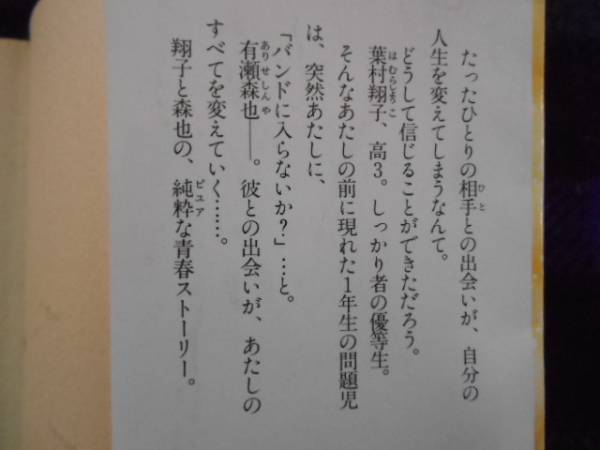 たったひとりの相手との出会いが、自分の
人生を変えてしまうなんて。
どうして信じることができただろう。
葉村翔子、高3。しっかり者の優等生。
そんなあたしの前に現れた1年生の問題児
は、突然あたしに、
「バンドに入らないか?」…と。
有瀬森也――。彼との出会いが、あたしの
すべてを変えていく……。
翔子と森也の、純粋な青春ストーリー。